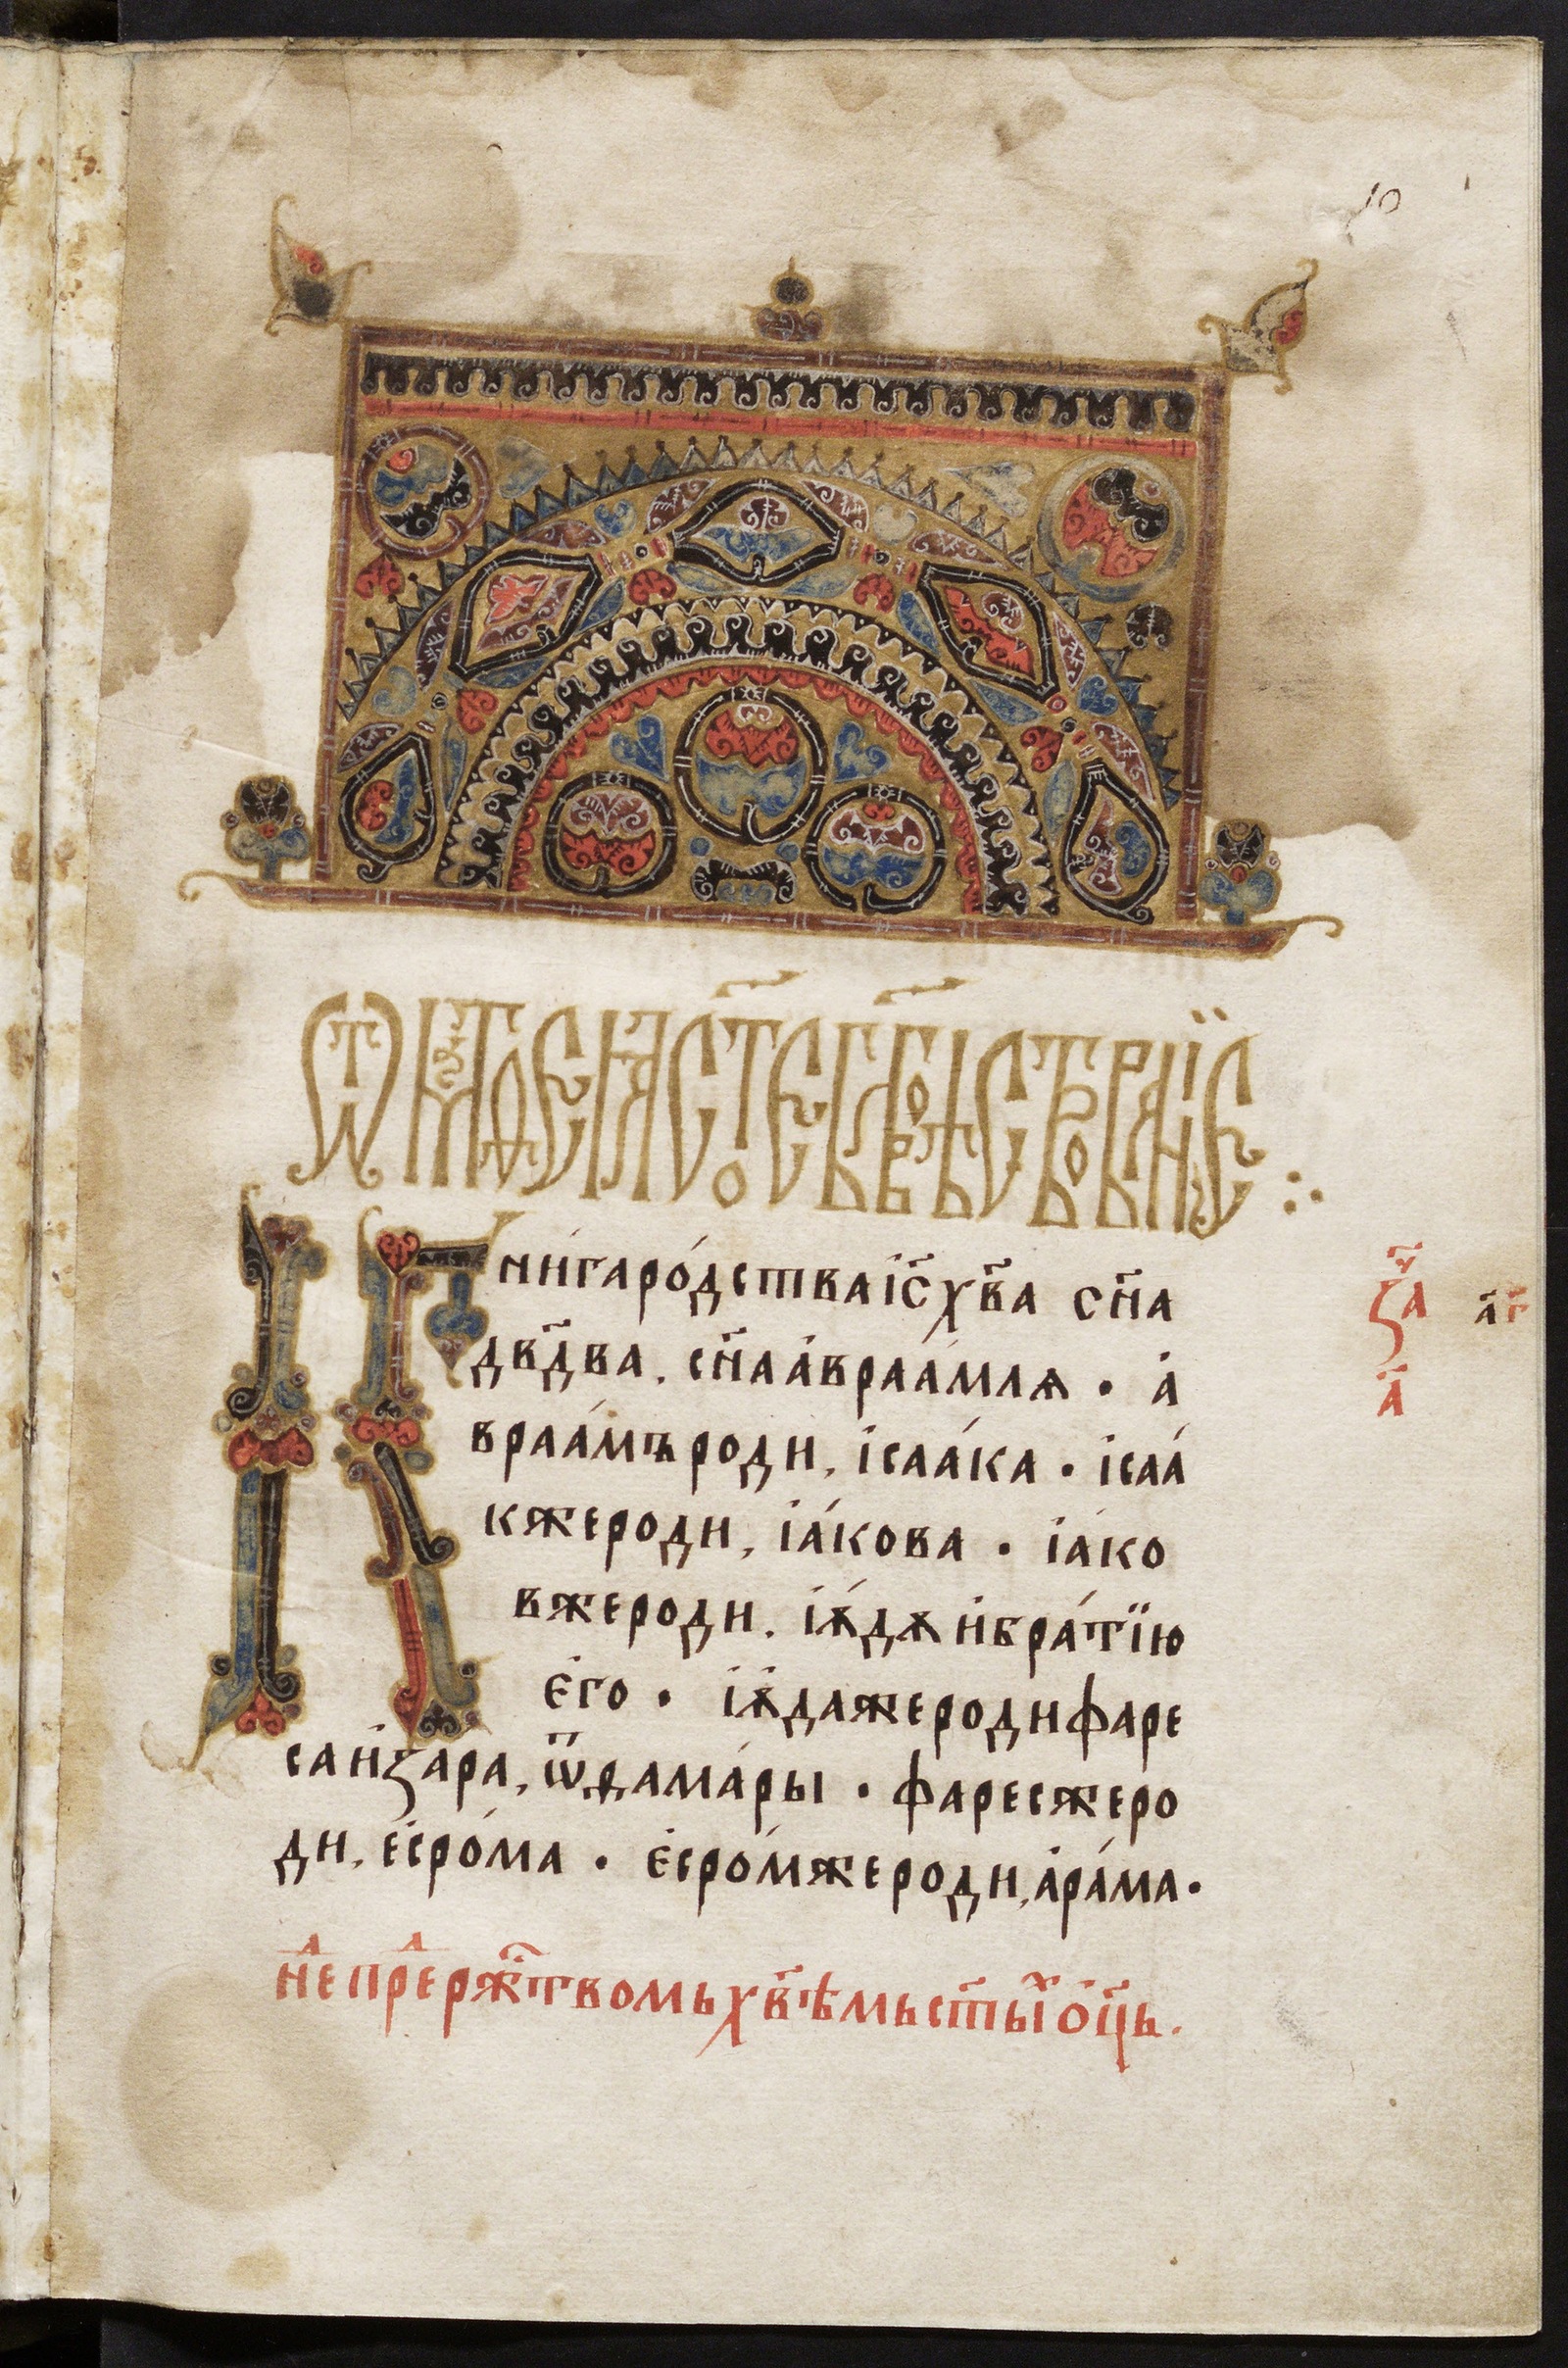 10
К
ниⷢ҇гаро́дстваі҆с҃хв҃а сн҃а
дв҃два. сн҃аа҆враа́млѧ · а҆
враа́мъроди, і҆саа́ка · і҆саа́
кжероди, і҆а́кова · і҆а́ко
вжероди. і҆ѫ́дѫ и҆бра́тїю
є҆го · і҆ѫ́дажеродифаре
саи҆зара, ѿдама́ры · фаресжеро
ди, есро́ма · є҆сро́мжероди, а҆ра́ма·
неⷣ преⷣ рж҃твомьхв҃ѣмьст҃ыⷯ ѻц҃ь.
за҃ч
а҃
а҃ г҃